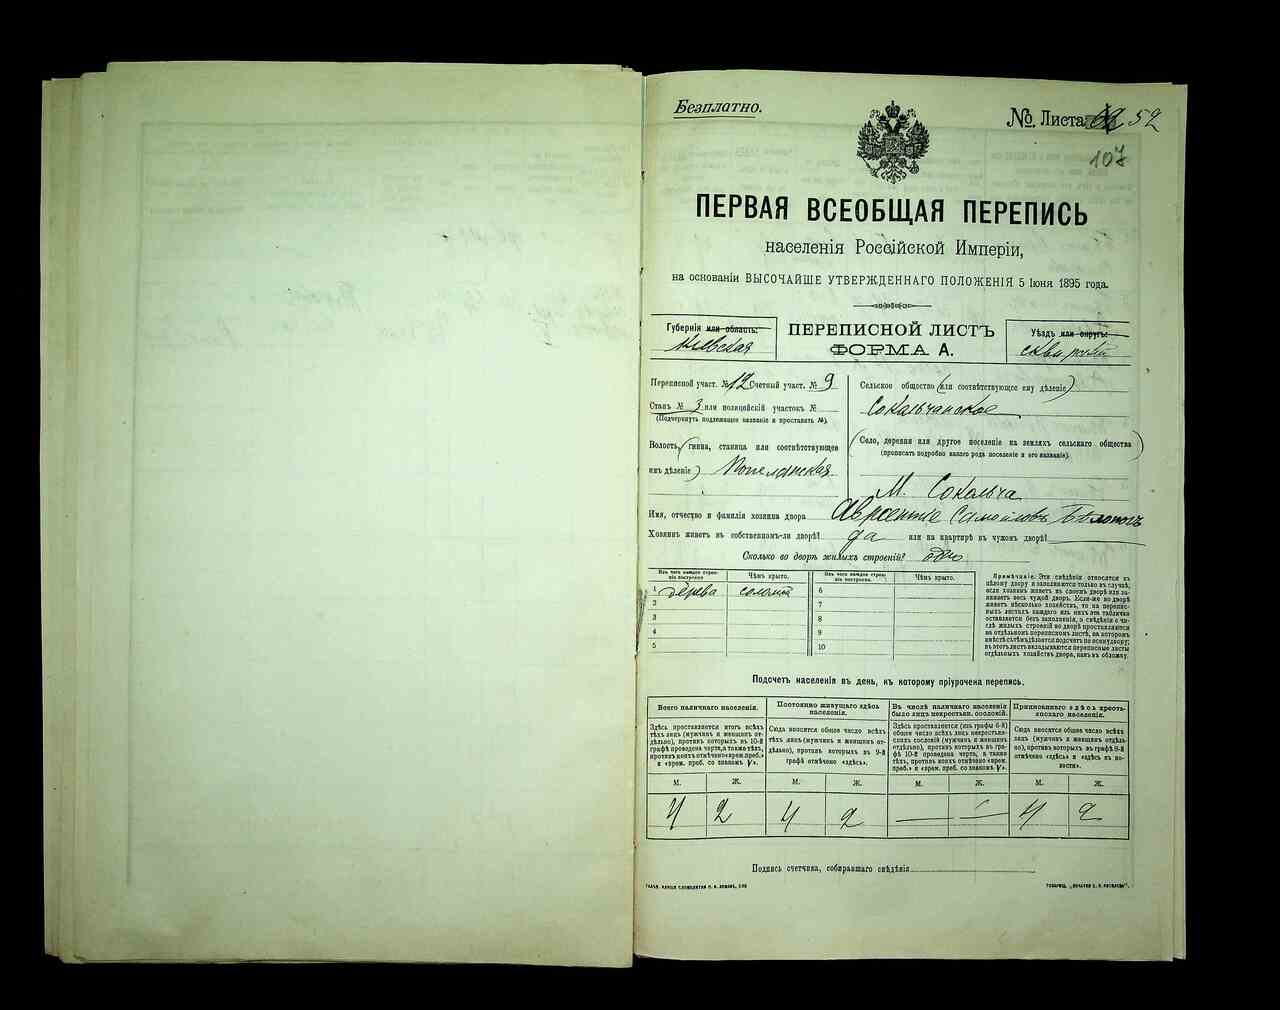 Безплатно.
№ Листа 52
107
ПЕРВАЯ ВСЕОБЩАЯ ПЕРЕПИСЬ
населенія Россійской Имперіи,
на основаніи ВЫСОЧАЙШЕ УТВЕРЖДЕННАГО ПОЛОЖЕНІЯ 5 Іюня 1895 года.
Губернія или область:
Кіевская
ПЕРЕПИСНОЙ ЛИСТЪ
ФОРМА А.
Уѣздъ или округъ:
Сквирскій
Переписной участ. № 12 Счетный участ. № 9
Станъ № 3 или полицейскій участокъ №
(Подчеркнуть подлежащее названіе и проставить №).
Волость (гмина, станица или соотвѣтствующее
имъ дѣленіе)
Сельское общество (или соотвѣтствующее ему дѣленіе)
Сокольчанское
(Село, деревня или другое поселеніе на земляхъ сельскаго общества)
(прописать подробно какого рода поселеніе и его названіе).
М. Сокольча
Имя, отчество и фамилія хозяина двора Авксентіе Самойловъ
Хозяинъ живетъ въ собственномъ-ли дворѣ? да или на квартирѣ въ чужомъ дворѣ?
Сколько во дворѣ жилыхъ строеній? одно
Изъ чего каждое строеніе построено
Чѣмъ крыто.
Изъ чего каждое строеніе построено.
Чѣмъ крыто.
1 дерева соломой 6
2 7
3 8
4 9
5 10
Примѣчаніе. Эти свѣдѣнія относятся къ
цѣлому двору и заполняются только въ случаѣ,
если хозяинъ живетъ въ своемъ дворѣ или занимаетъ
весь чужой дворъ. Если-же во дворѣ
живетъ нѣсколько хозяйствъ, то на переписныхъ
листахъ каждаго изъ нихъ эта табличка
оставляется безъ заполненія, а свѣдѣнія о числѣ
жилыхъ строеній во дворѣ проставляются
на отдѣльномъ переписномъ листѣ, на которомъ
вмѣстѣ съ тѣмъ дѣлается подсчетъ по всему двору;
въ этотъ листъ вкладываются переписные листы
отдѣльныхъ хозяйствъ двора, какъ въ обложку.
Подсчетъ населенія въ день, къ которому пріурочена перепись.
Всего наличнаго населенія.
Постоянно живущаго здѣсь населенія.
Въ числѣ наличнаго населенія было лицъ некрестьян. сословій.
Приписаннаго здѣсь крестьянскаго населенія.
Здѣсь проставляется итогъ всѣхъ
тѣхъ лицъ (мужчинъ и женщинъ отдѣльно),
противъ которыхъ въ 10-й
графѣ проведена черта, а также тѣхъ,
противъ коихъ отмѣчено «врем. преб.»
и «врем. преб. со знакомъ V».
Сюда вносится общее число всѣхъ
тѣхъ лицъ (мужчинъ и женщинъ отдѣльно),
противъ которыхъ въ 9-й
графѣ отмѣчено «здѣсь».
Здѣсь проставляется (изъ графы 6-й)
общее число всѣхъ лицъ некрестьянскихъ
сословій (мужчинъ и женщинъ
отдѣльно), противъ которыхъ въ графѣ
10-й проведена черта, а также
тѣхъ, противъ коихъ отмѣчено «врем.
преб.» и «врем. преб. со знакомъ V».
Сюда вносится общее число всѣхъ
лицъ (мужчинъ и женщинъ отдѣльно),
противъ которыхъ въ графѣ 8-й
отмѣчено «здѣсь» и «здѣсь въ волости».
М. Ж. М. Ж. М. Ж. М. Ж.
4 2 4 2 — — 4 2
Подпись счетчика, собиравшаго свѣдѣнія